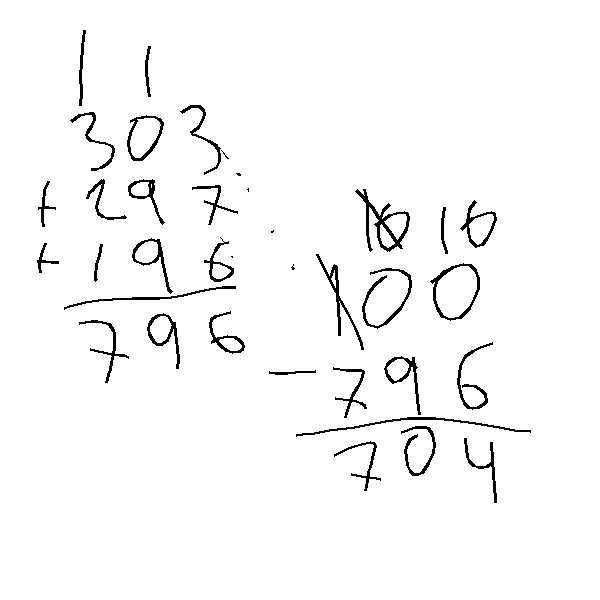 1 1
303
+ 297
+ 196
796
10 10
100
- 796
704